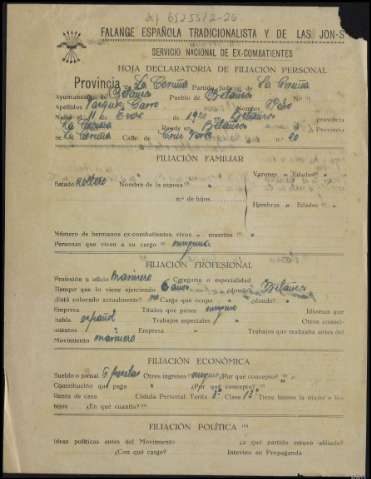 FALANGE ESPAÑOLA TRADICIONALISTA Y DE LAS JON-S
SERVICIO NACIONAL DE EX-COMBATIENTES
HOJA DECLARATORIA DE FILIACIÓN PERSONAL
Provincia de La Coruña Partido Judicial de La Coruña
Ayuntamiento de Betanzos Pueblo de Betanzos
Apellidos Vazquez Nombre
Nació el 11 de de 1920 Betanzos
La Coruña Reside en Betanzos Provincia
La Coruña Calle de n.º 20
FILIACIÓN FAMILIAR
Varones = Edades
Estado soltero Nombre de la esposa
n.º de hijos
Hembras = Edades
Número de hermanos ex-combatientes, vivos = muertos
Personas que viven a su cargo = ninguna
FILIACIÓN PROFESIONAL
Profesión u oficio marinero Categoría o especialidad
tiempo que lo viene ejerciendo 6 años Betanzos
¿Está colocado actualmente? no Cargo que ocupa ¿dónde?
Empresa Títulos que posee ninguno Idiomas que
habla español Trabajos especiales Otros conoci-
mientos Empresa Trabajos que realizaba antes del
Movimiento marinero
FILIACIÓN ECONÓMICA
Sueldo o jornal pesetas Otros ingresos ¿Por qué conceptos?
Contribución que paga ¿Por qué conceptos?
Renta de casa Cédula Personal Tarifa Clase Tiene bienes la mujer o los
hijos ¿En qué cuantía?
FILIACIÓN POLÍTICA
Ideas políticas antes del Movimiento ¿a qué partido estuvo afiliado?
¿Con qué cargo? Intervino en Propaganda